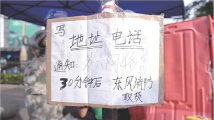 写
地址 电话
通知:
30分钟后 东风消防
取货